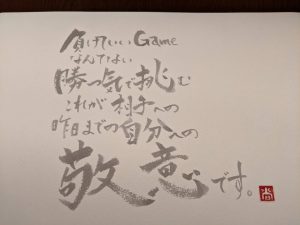 負けていいGame
なんてない
勝つ気で挑む
これが相手への
昨日までの自分への
敬意です。